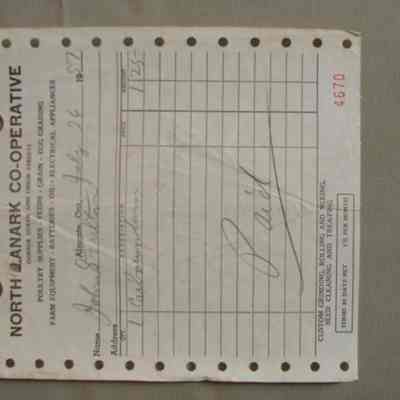 NORTH LANARK CO-OPERATIVE
CORNER QUEEN AND UNION STREETS
POULTRY SUPPLIES - FEEDS - GRAIN - EGG GRADING
FARM EQUIPMENT - BATTERIES - OIL - ELECTRICAL APPLIANCES
Almonte, Ont., July 26 1957
Name John
Address
QTY. DESCRIPTION PRICE AMOUNT
1 1 25
Paid
CUSTOM GRINDING, ROLLING AND MIXING,
SEED CLEANING AND TREATING
TERMS 30 DAYS NET 1% PER MONTH
4670